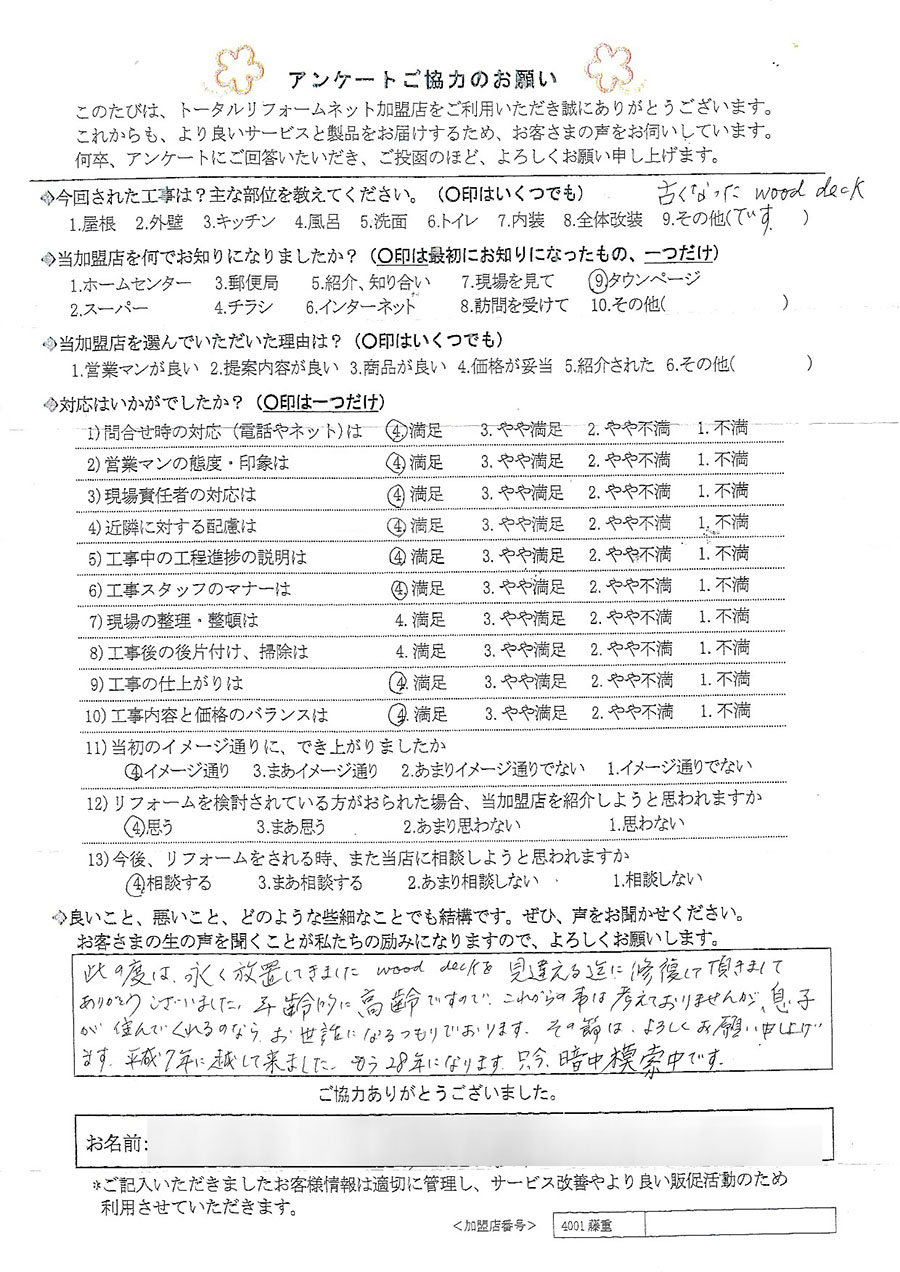 アンケートご協力のお願い
このたびは、トータルリフォームネット加盟店をご利用いただき誠にありがとうございます。
これからも、より良いサービスと製品をお届けするため、お客さまの声をお伺いしています。
何卒、アンケートにご回答いたいだき、ご投函のほど、よろしくお願い申し上げます。
今回された工事は？主な部位を教えてください。（〇印はいくつでも）
古くなった wood deck
1.屋根 2.外壁 3.キッチン 4.風呂 5.洗面 6.トイレ 7.内装 8.全体改装 9.その他(です。)
当加盟店を何でお知りになりましたか？（〇印は最初にお知りになったもの、一つだけ）
1.ホームセンター 3.郵便局 5.紹介、知り合い 7.現場を見て ⑨タウンページ
2.スーパー 4.チラシ 6.インターネット 8.訪問を受けて 10.その他( )
当加盟店を選んでいただいた理由は？（〇印はいくつでも）
1.営業マンが良い 2.提案内容が良い 3.商品が良い 4.価格が妥当 5.紹介された 6.その他( )
対応はいかがでしたか？（〇印は一つだけ）
1)問合せ時の対応（電話やネット)は ④.満足 3.やや満足 2.やや不満 1.不満
2)営業マンの態度・印象は ④満足 3.やや満足 2.やや不満 1.不満
3)現場責任者の対応は ④満足 3.やや満足 2.やや不満 1.不満
4)近隣に対する配慮は ④満足 3.やや満足 2.やや不満 1.不満
5)工事中の工程進捗の説明は ④満足 3.やや満足 2.やや不満 1.不満
6)工事スタッフのマナーは ④満足 3.やや満足 2.やや不満 1.不満
7)現場の整理・整頓は 4.満足 3.やや満足 2.やや不満 1.不満
8)工事後の後片付け、掃除は 4.満足 3.やや満足 2.やや不満 1.不満
9)工事の仕上がりは ④.満足 3.やや満足 2.やや不満 1.不満
10)工事内容と価格のバランスは ④.満足 3.やや満足 2.やや不満 1.不満
11)当初のイメージ通りに、でき上がりましたか
④イメージ通り 3.まあイメージ通り 2.あまりイメージ通りでない 1.イメージ通りでない
12)リフォームを検討されている方がおられた場合、当加盟店を紹介しようと思われますか
④思う 3.まあ思う 2.あまり思わない 1.思わない
13)今後、リフォームをされる時、また当店に相談しようと思われますか
④相談する 3.まあ相談する 2.あまり相談しない 1.相談しない
良いこと、悪いこと、どのような些細なことでも結構です。ぜひ、声をお聞かせください。
お客さまの生の声を聞くことが私たちの励みになりますので、よろしくお願いします。
此の度は、永く放置してきました wood deckを 見違える迄に修復して頂きまして
ありがとうございました。年齢的に高齢ですので、これからの事は考えておりませんが、息子
が住んでくれるのなら、お世話になるつもりでおります。その節は、よろしくお願い申し上げ
ます。平成7年に越して来ました。もう28年になります。只今、暗中模索中です。
ご協力ありがとうございました。
お名前:
*ご記入いただきましたお客様情報は適切に管理し、サービス改善やより良い販促活動のため
利用させていただきます。
＜加盟店番号＞ 4001 藤重